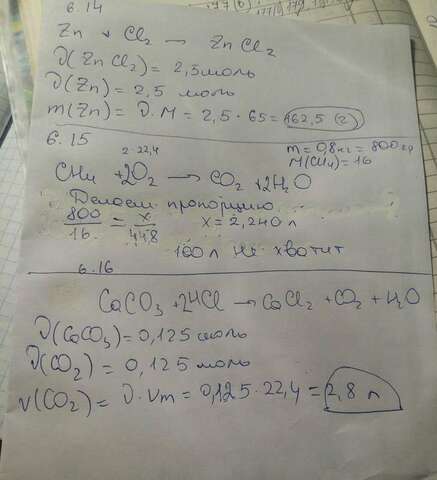 6.14
Zn + Cl₂ → ZnCl₂
ν(ZnCl₂) = 2,5 моль
ν(Zn) = 2,5 моль
m(Zn) = ν·M = 2,5·65 = 162,5 (г)
6.15
m = 0,8 кг = 800 гр
2·22,4
M(CH₄) = 16
CH₄ + 2O₂ → CO₂ + 2H₂O
Делаем пропорцию
800/16 = x/44.8 x = 2,240 л
100 л не хватит
6.16
CaCO₃ + 2HCl → CaCl₂ + CO₂ + H₂O
ν(CaCO₃) = 0,125 моль
ν(CO₂) = 0,125 моль
v(CO₂) = ν·Vm = 0,125·22,4 = 2,8 л